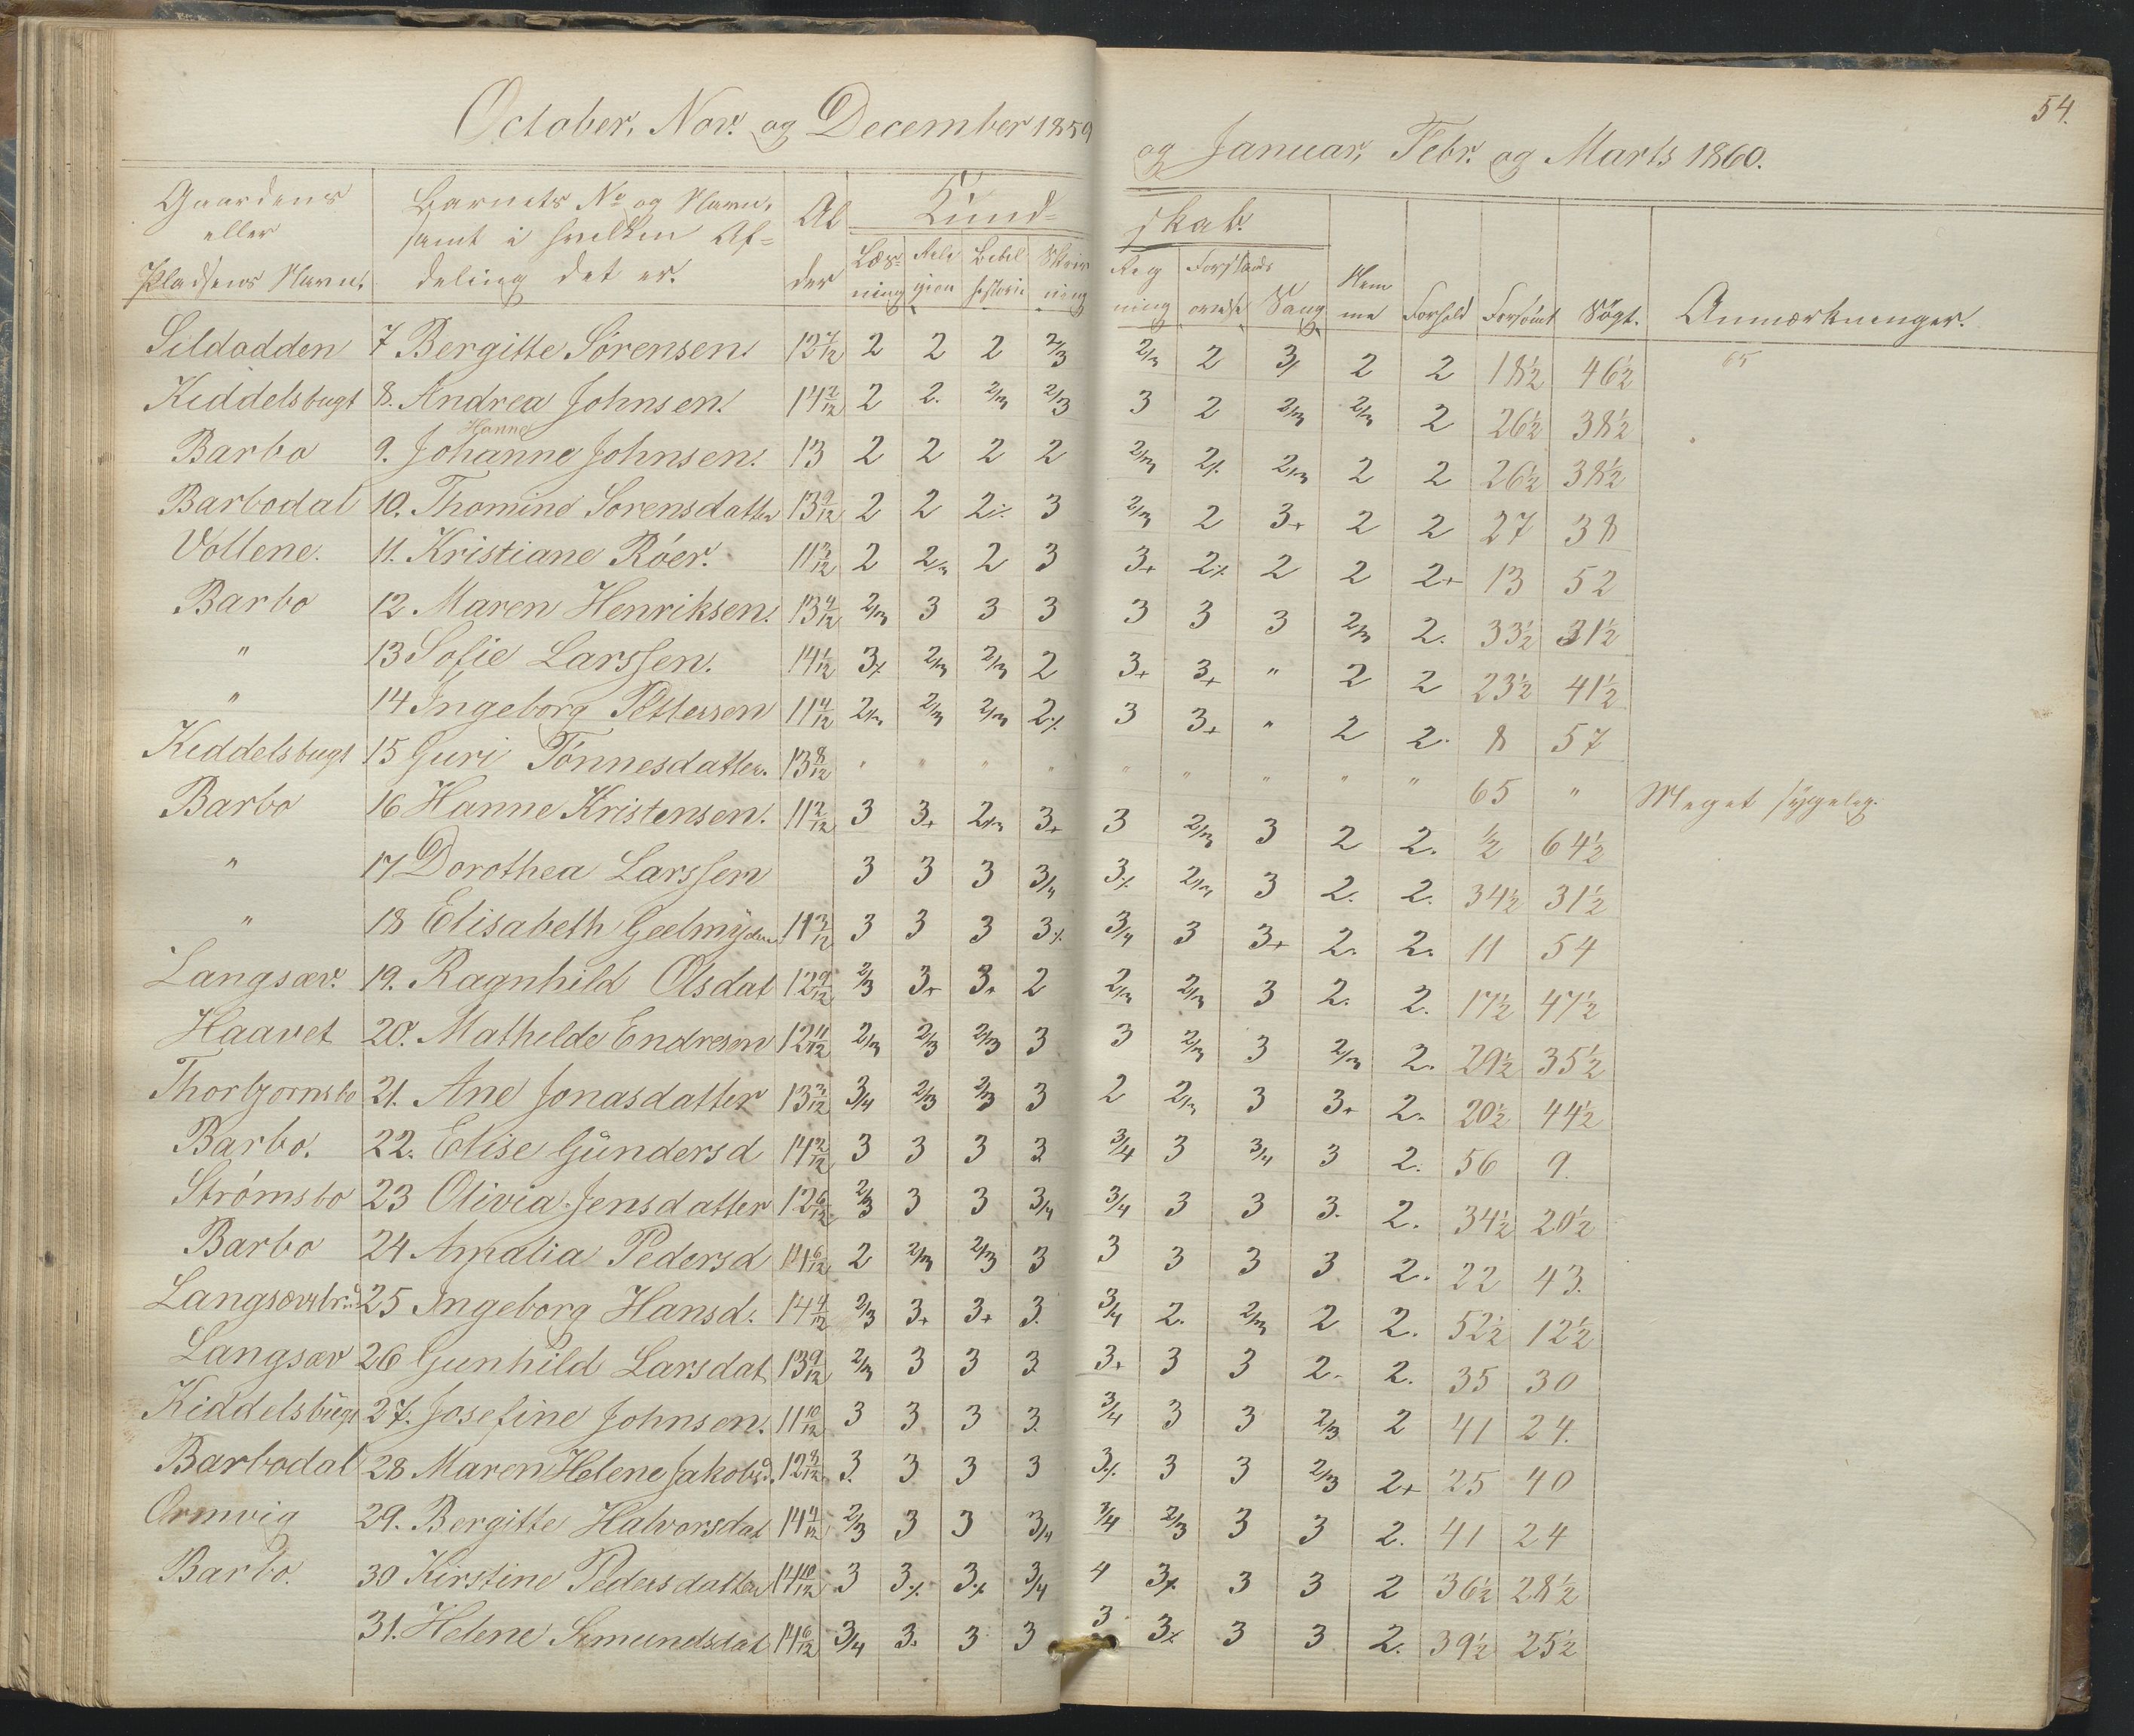 54.
October, Nov. og December 1859
og Januar, Febr. og Marts 1860.
Gaardens eller Pladsens Navn. | Barnets No og Navn, samt i hvilken Afdeling det er. | Alder | Kundskab. | Læsning | Religion | Bibelhistorie | Skrivning | Regning | Forstandsøvelse | Sang | Nemme | Forhold | Forsømt | Søgt. | Anmærkninger.
Sildodden 7 Bergitte Sørensen. 12 7/12 2 2 2 2/3 2/3 2 3⁒ 2 2 18½ 46½ 65
Kiddelsbugt 8. Andrea Johnsen. 14 2/12 2 2. 2/3 2/3 3 2 2/3 2/3 2 26½ 38½
Hanne
Barbo 9. Johanne Johnsen. 13 2 2 2 2 2/3 2⁒ 2/3 2 2 26½ 38½
Barbodal 10. Thomine Sorensdatter 13 9/12 2 2 2⁒ 3 2/3 2 3+ 2 2 27 38
Vollene. 11. Kristiane Róer. 11 3/12 2 2/3 2 3 3+ 2⁒ 2 2 2+ 13 52
Barbo 12 Maren Henriksen. 13 4/12 2/3 3 3 3 3 3 3 2/3 2. 33½ 31½
" 13 Sofie Larssen. 14 1/12 3⁒ 2/3 2/3 2 3+ 3+ " 2 2 23½ 41½
" 14 Ingeborg Pettersen 11 4/12 2/3 2/3 2/3 2⁒ 3 3+ " 2 2. 8 57
Kiddelsbugt 15 Guri Tónnesdatter. 13 8/12 " " " " " " " " " 65 " Meget sygelig.
Barbo 16 Hanne Kristensen. 11 2/12 3 3+ 2/3 3+ 3 2/3 3 2 2. ½ 64½
" 17 Dorothea Larssen 3 3 3 3/4 3⁒ 2/3 3 2. 2. 34½ 31½
" 18 Elisabeth Geelmÿden 11 3/12 3 3 3 3⁒ 3/4 3 3+ 2. 2. 11 54
Langsæv. 19. Ragnhild Olsdat 12 9/12 2/3 3+ 3+ 2 2/3 2/3 3 2. 2. 17½ 47½
Haavet 20. Mathilde Endresen 12 11/12 2/3 2/3 2/3 3 3 2/3 3 2/3 2. 29½ 35½
Thorbjornsbo 21. Ane Jonasdatter 13 3/12 3/4 2/3 2/3 3 2 2/3 3 3+ 2. 20½ 44½
Barbo. 22. Elise Gůndersd 14 2/12 3 3 3 3 3/4 3 3/4 3 2. 56 9.
Strómsbo 23 Olivia Jensdatter 12 6/12 2/3 3 3 3/4 3/4 3 3 3. 2. 34½ 20½
Barbo 24 Amalia Pedersd 14 6/12 2 2/3 2/3 3 3 3 3 3 2. 22 43.
25 Ingeborg Hansd. 14 4/12 2/3 3+ 3+ 3. 3/4 2. 2/3 2 2. 52½ 12½
Langsæv 26 Gunhild Larsdat 13 9/12 2/3 3 3 3 3+ 3 3 2. 2. 35 30
Kiddelsbůgt 27. Josefine Johnsen. 11 10/12 3 3 3 3. 3/4 3 3 2/3 2 41 24.
Barbodal 28 Maren Helene Jakobsd. 3. 3 3 3 3⁒ 3 3 2/3 2+ 25 40
Ormvig 29. Bergitte Halvorsdat 14 4/12 2/3 3 3 3/4 3/4 2/3 3 3 2. 41 24
Barbo. 30 Kirstine Pedersdatter 14 10/12 3 3⁒ 3⁒ 3/4 4 3⁒ 3 3 2 36½ 28½
31. Helene Semundsdat 14 6/12 3/4 3. 3 3 3 3⁒ 3 3 2. 39½ 25½